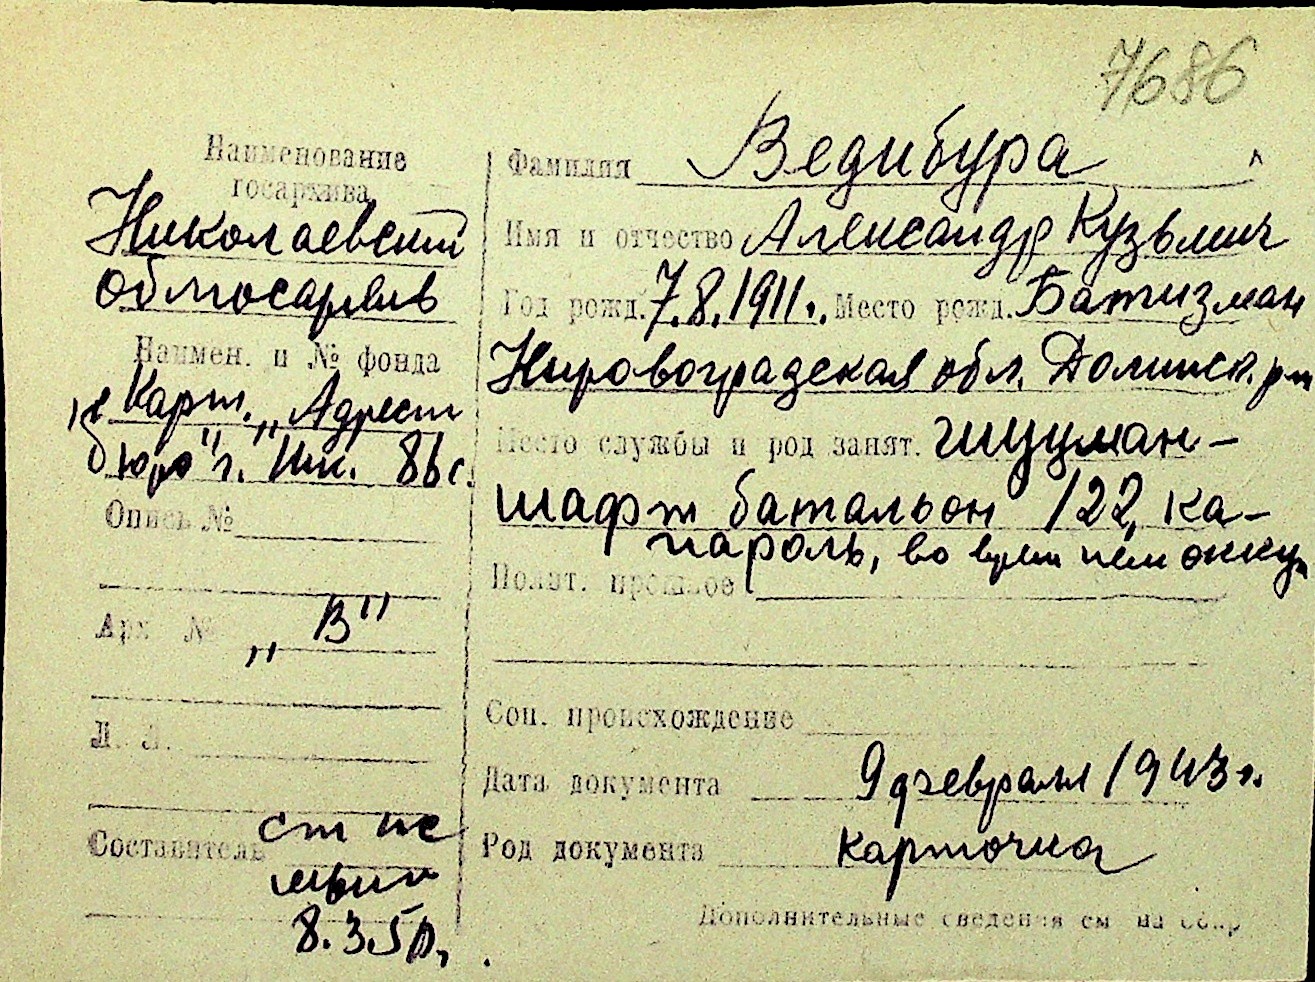 7686
Наименование
госархива
Николаевский
облгосархив
Наимен. и № фонда
Карт. „Адресн
бюро" г. Ник. 86 с.
Опись №
Арх №
„В"
Л. Л.
Составитель
8.3.50.
Фамилия Ведибура
Имя и отчество Александр Кузьмич
Год рожд. 7.8.1911г. Место рожд. Батизман
Кировоградская обл. Долинск. рн
Место службы и род занят. шуцман-
шафт батальон 122, ка-
пароль, во врем нем оккуп
Полит. прошлое
Соц. происхождение
Дата документа 9 февраля 1943 г.
Род документа карточка
Дополнительные сведения см на обор